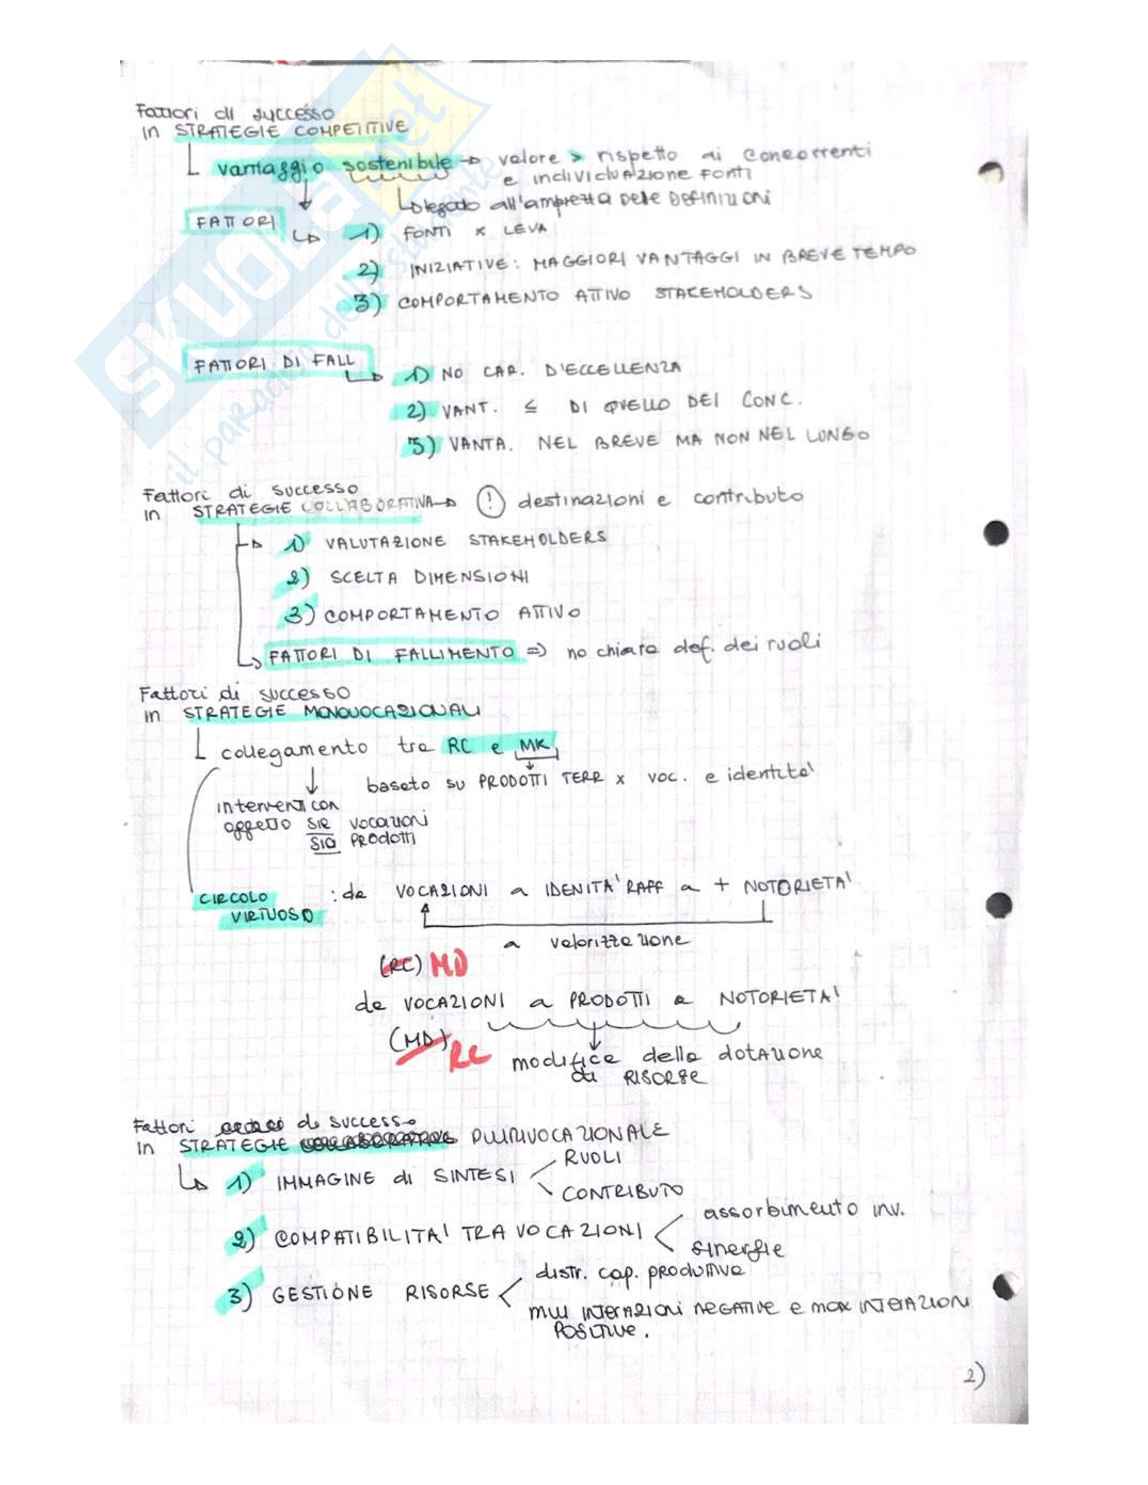 Fattori di successo
in STRATEGIE COMPETITIVE
vantaggio sostenibile → valore > rispetto ai concorrenti
e individuazione FONTI
legato all'ampiezza delle DEFINIZIONI
FATTORI
1) FONTI x LEVA
2) INIZIATIVE: MAGGIORI VANTAGGI IN BREVE TEMPO
3) COMPORTAMENTO ATTIVO STAKEHOLDERS
FATTORI DI FALL
1) NO CAR. D'ECCELLENZA
2) VANT. ≤ DI QUELLO DEI CONC.
3) VANTA. NEL BREVE MA NON NEL LUNGO
Fattori di successo
in STRATEGIE COLLABORATIVA → (!) destinazioni e contributo
1) VALUTAZIONE STAKEHOLDERS
2) SCELTA DIMENSIONI
3) COMPORTAMENTO ATTIVO
FATTORI DI FALLIMENTO ⇒ no chiara def. dei ruoli
Fattori di successo
in STRATEGIE MONOVOCAZIONALI
collegamento tra RC e MK
basato su PRODOTTI TERR x VOC. e identità
interventi con
oggetto SIR VOCAZIONI
SIO PRODOTTI
CIRCOLO : da VOCAZIONI a IDENITA' RAFF a + NOTORIETA'
VIRTUOSO
a valorizzazione
(RC) MD
da VOCAZIONI a PRODOTTI a NOTORIETA'
(MD) RC
modifica della dotazione
di RISORSE
Fattori di successo
in STRATEGIE PLURIVOCAZIONALE
1) IMMAGINE di SINTESI
RUOLI
CONTRIBUTO
2) COMPATIBILITA' TRA VOCAZIONI
assorbimento inv.
sinergie
3) GESTIONE RISORSE
distr. cap. produttiva
min INTERAZIONI NEGATIVE e max INTERAZIONI
POSITIVE.
2)
SKUOLA.net
il paradiso dello studente